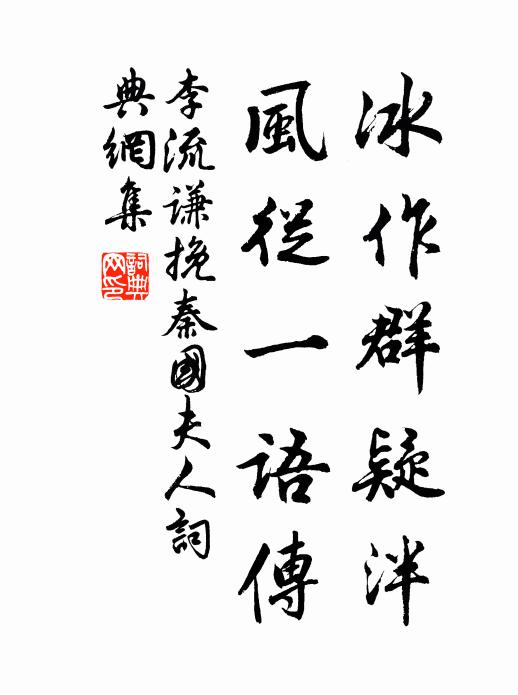 冰作群疑泮
風從一語傳
李流謙挽秦國夫人詞
典網集
詞典
网印